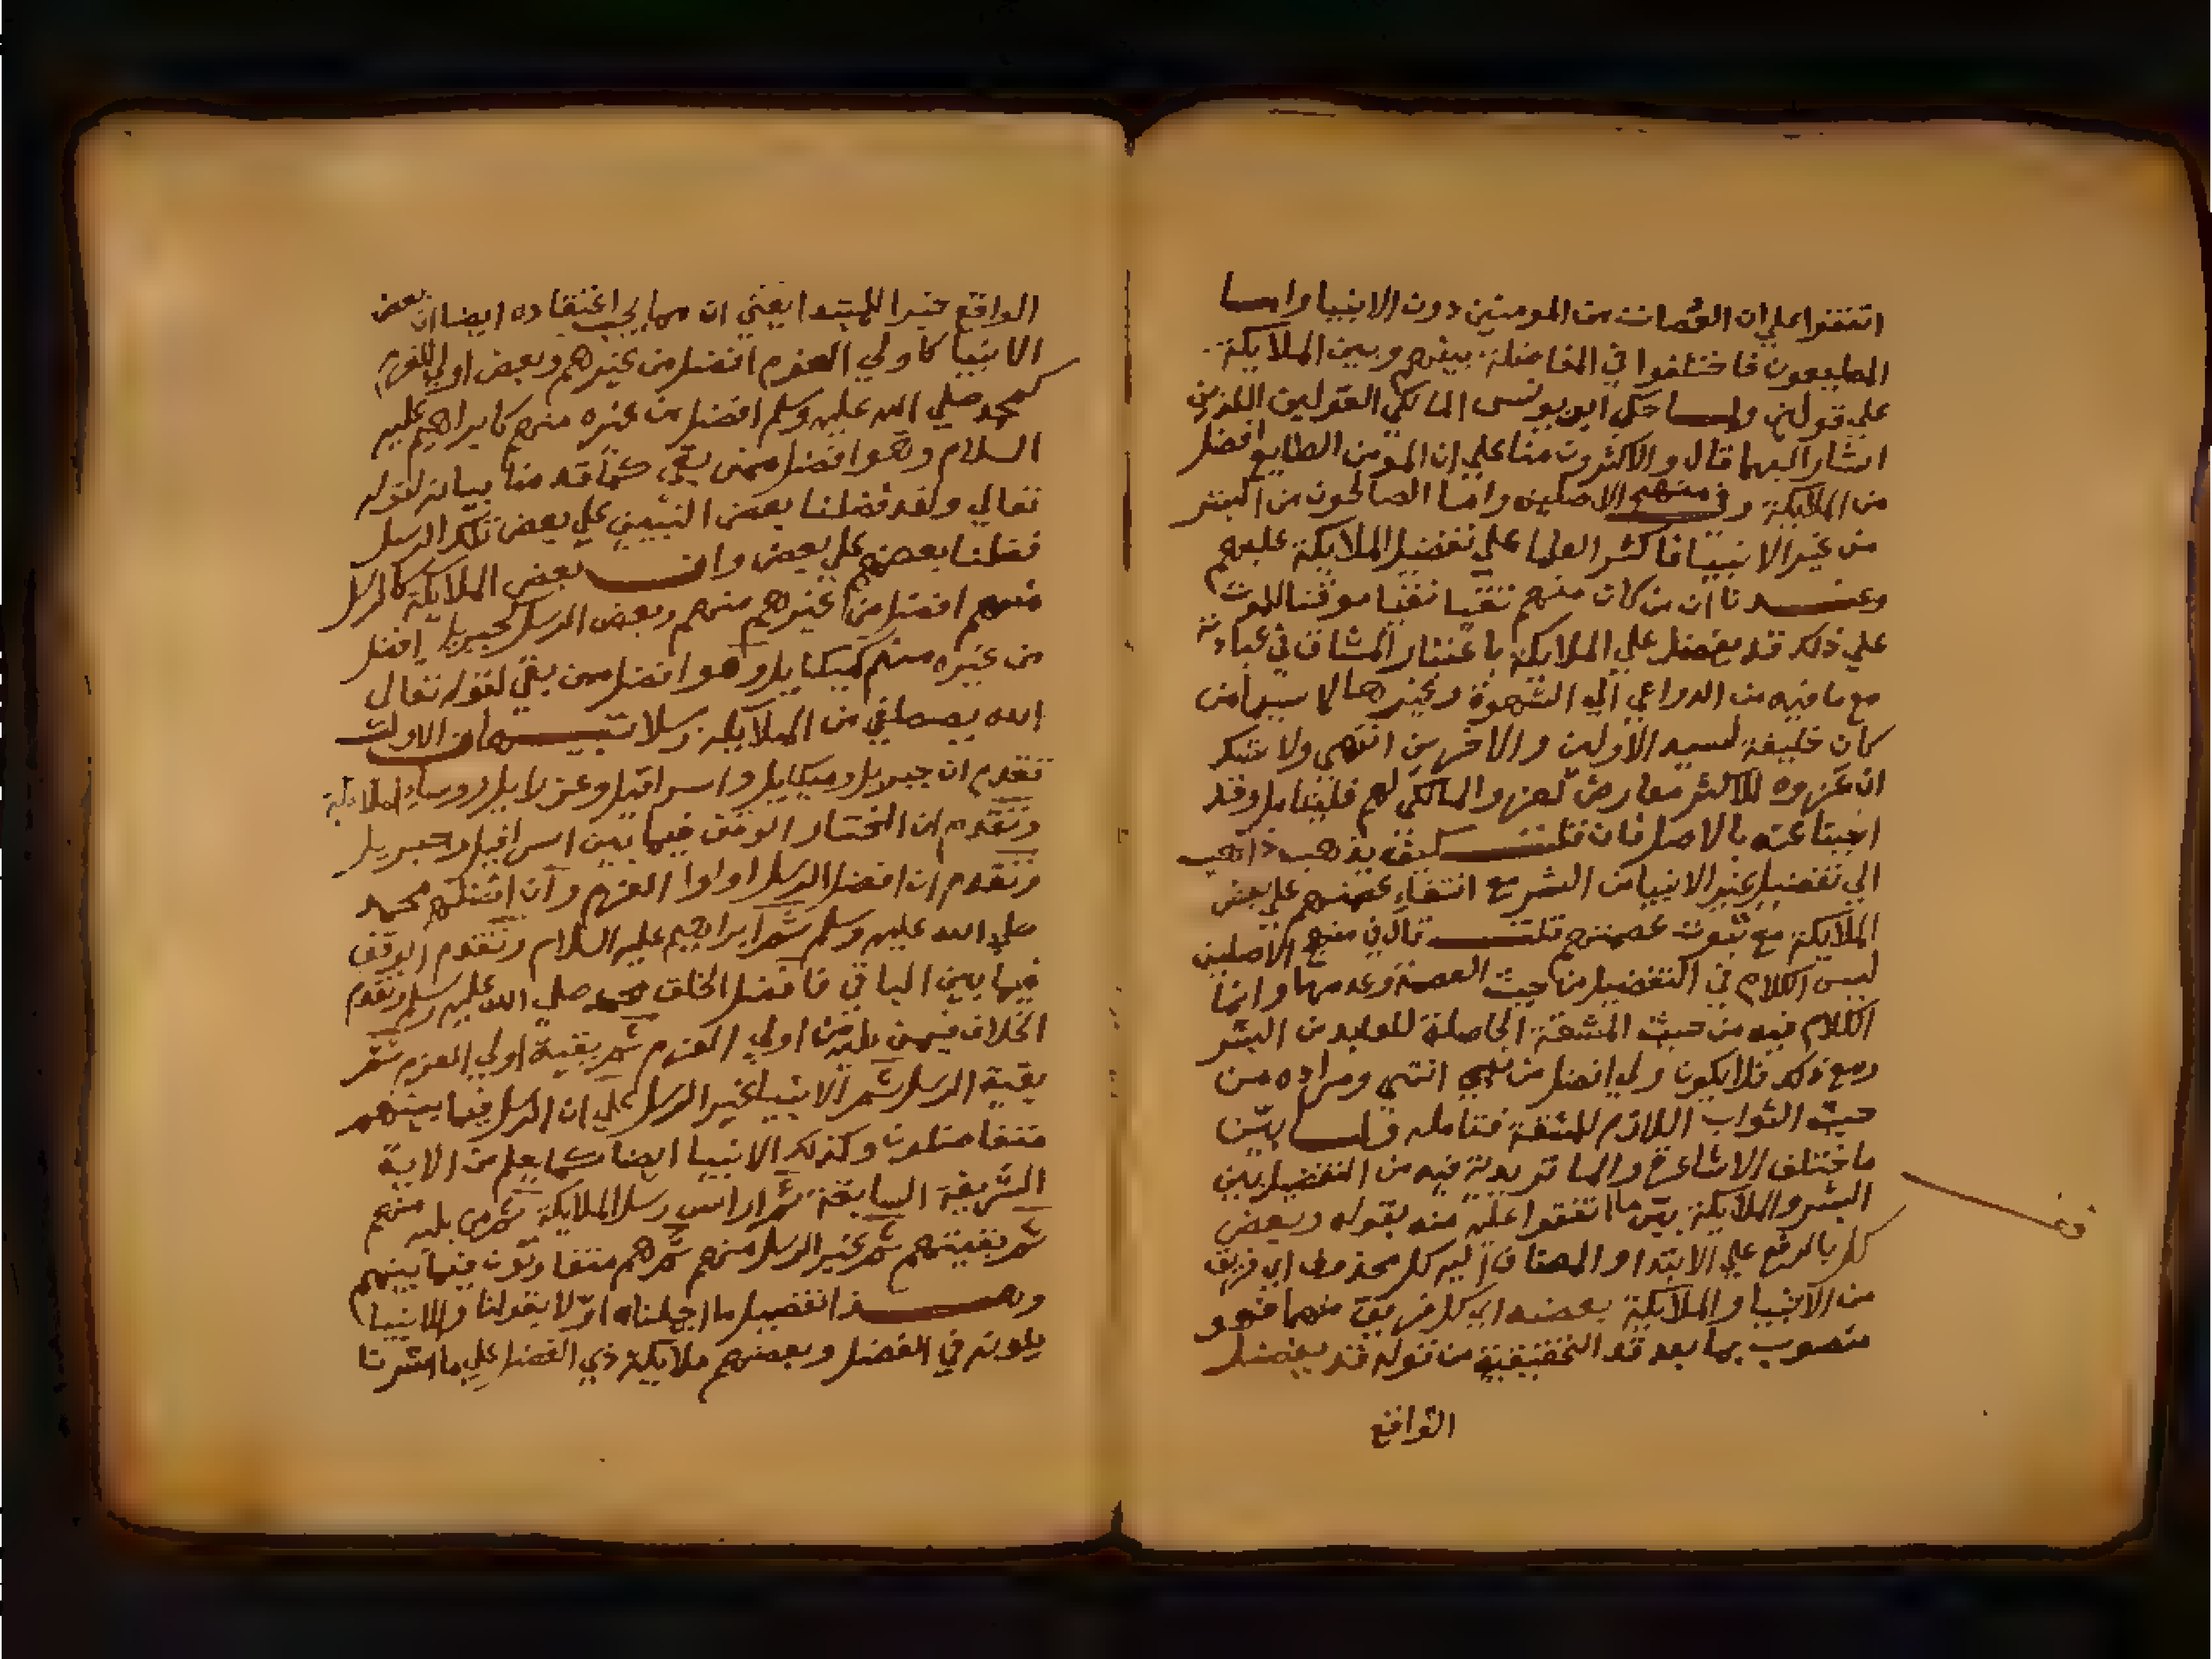 اتفقوا علي ان العصاة من المومنين دون الانبيا واما
المطيعون فاختلفوا في المفاضلة بينهم وبين الملايكة
علي قولين ولما حكي ابن يونس المالكي القولين اللذين
اشار اليهما قال والاكثرون منا علي ان المومن الطايع افضل
من الملايكة وفي منهج الاصلين واما الصالحون من البشر
من غير الانبيا فاكثر العلما علي تفضيل الملايكة عليهم
وعندنا ان من كان منهم تقيا نقيا موقنا للموت
علي ذلك قد يفضل علي الملايكة باعتبار المشاق في عبادته
مع ما فيه من الدواعي الي الشهوة وغيرها لا سيما من
كان خليفة لسيد الاولين والاخرين انتهي ولا شك
ان عزوه للاكثر معارض لعزو المالكي لهم فليتامل وقد
اجبنا عنه بالاصل فان قلت كيف يذهب ذاهب
الي تفضيل غير الانبيا من البشر مع انتفاء عصمتهم علي بعض
الملايكة مع ثبوت عصمتهم قلت قال في منهج الاصلين
ليس الكلام في التفضيل من حيث العصمة وعدمها وانما
الكلام فيه من حيث المشقة الحاصلة للعابد من البشر
ومع ذلك فلا يكون ولي افضل من نبي انتهي ومراده من
حيث الثواب اللازم للمشقة فتامله ولما بين
ما اختلف الاشاعرة والماتريدية فيه من التفضيل بين
البشر والملايكة بين ما اتفقوا عليه منه بقوله وبعض
كل بالرفع علي الابتدا والمضاف اليه كل محذوف اي فريق
من الانبيا والملايكة بعضه اي كل فريق منهما فهو
منصوب بما بعد قد التحقيقية من قوله قد يفضل
الواقع
الواقع خبرا للمبتدا يعني ان مما يجب اعتقاده ايضا ان بعض
الانبيا كاولي العزم افضل من غيرهم وبعض اولي العزم
كمحمد صلي الله عليه وسلم افضل من غيره منهم كابراهيم عليه
السلام وهو افضل ممن بقي كما قدمنا بيانه لقوله
تعالي ولقد فضلنا بعض النبيين علي بعض تلك الرسل
فضلنا بعضهم علي بعض وان بعض الملايكة كالرسل
منهم افضل من غيرهم منهم وبعض الرسل كجبريل افضل
من غيره منهم كميكاييل وهو افضل ممن بقي لقوله تعالي
الله يصطفي من الملايكة رسلا تنبيهان الاول
تقدم ان جبريل وميكاييل واسرافيل وعزراييل روساء الملايكة
وتقدم ان المختار الوقف فيما بين اسرافيل وجبريل
وتقدم ان افضل الرسل اولوا العزم وان افضلهم محمد
صلي الله عليه وسلم ثم ابراهيم عليه السلام وتقدم الوقف
فيما بين الباقي فافضل الخلق محمد صلي الله عليه وسلم وتقدم
الخلاف فيمن يليه من اولي العزم ثم بقية اولي العزم ثم
بقية الرسل ثم الانبيا غير الرسل علي ان الرسل فيما بينهم
متفاضلون وكذلك الانبيا ايضا كما يعلم من الاية
الشريفة السابقة ثم اراس رسل الملايكة ثم من يليه منهم
ثم بقيتهم ثم غير الرسل منهم ثم هم متفاوتون فيما بينهم
وهذا تفضيل ما اجملناه اولا بقولنا والانبيا
يلونه في الفضل وبعضهم ملايكة ذي الفضل علي ما اشرنا